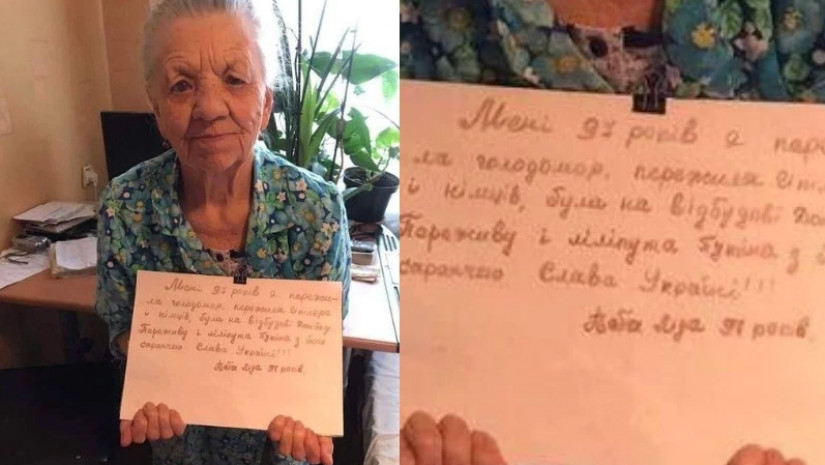 Мені 97 років я пережи-
ла голодомор, пережила Гітлера
і німців, була на відбудові
Переживу і ліліпута Путіна з його
саранчою Слава Україні!!!
Баба 97 років.
Мені 97 років я пере
ла голодомор, пережила
і німців, була на відбудові
Переживу і ліліпута Путіна з
саранчою Слава Україні!!!
Баба 97 років.